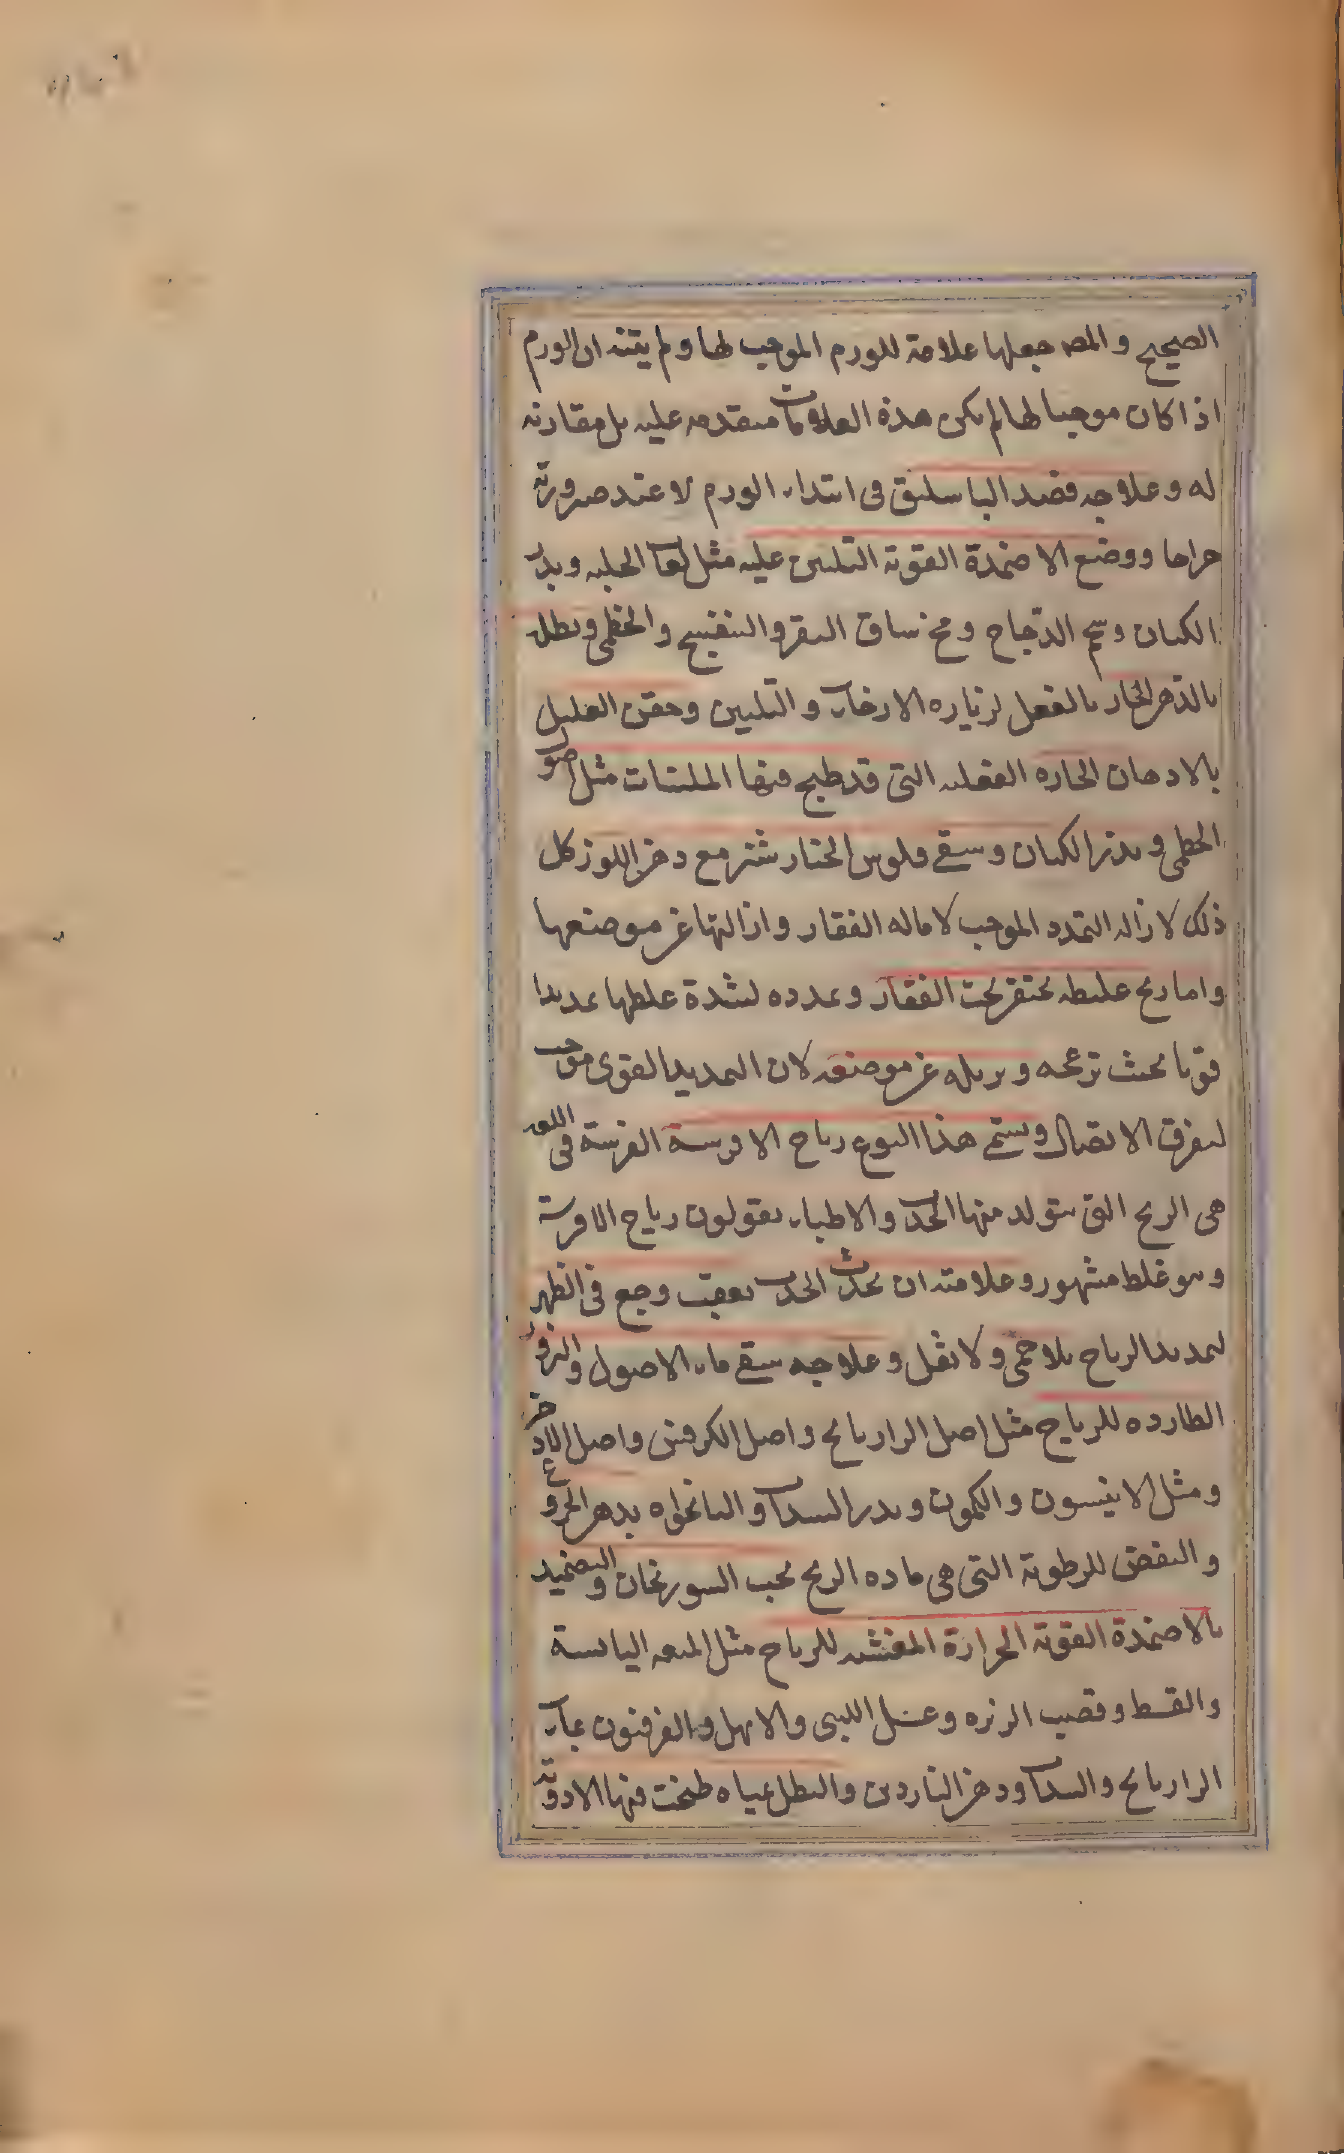 الصحيح والمصـ جعلها علامة للورم الموجب لها ولم يتنبه ان الورم
اذا كان موجبا لها لم يكن هذه العلامات متقدمه عليه بل مقارنه
له وعلاجه فصد الباسليق فى ابتداء الورم لا عند صرورته
خراجا ووضع الاضمدة القوية التليين عليه مثل لعاب الحلبه وبذر
الكتان وشحم الدجاج ومخ ساق البقر والبنفسج والخطمى ونطل
بالدهن الحار بالفعل لزياده الارخاء والتليين وحقن العليل
بالادهان الحاره الفعليه التى قد طبخ فيها الملينات مثل اصول
الخطمى وبذر الكتان وسقى فلوس الخيار شنبر مع دهن اللوز كل
ذلك لازاله التمدد الموجب لاماله الفقار وازالتها عن موضعها
واما ريح غليظه تحتقن تحت الفقار وتمدده لشدة غلظها تمديدا
قويا بحيث تزعجه وتزيله عن موضعه لان التمديد القوى موجب
لتفرق الاتصال ويسمى هذا النوع رياح الافرسة الفرسة فى اللغه
هى الريح التى يتولد منها الحدب والاطباء يقولون رياح الافرسة
وهو غلط مشهور وعلامته ان يحدث الحدب بعقب وجع فى الظهر
لتمديد الرياح بلا حمى ولا ثقل وعلاجه سقى ماء الاصول والبزور
الطارده للرياح مثل اصل الرازيانج واصل الكرفس واصل الاذخر
ومثل الانيسون والكمون وبذر السداب والنانخواه بدهن الخروع
والنفض للرطوبة التى هى ماده الريح بحب السورنجان والتضميد
بالاضمدة القوية الحرارة المفشه للرياح مثل الميعه اليابسة
والقسط وقصب الذريره وعسل اللبنى والابهل والفرفيون بماء
الرازيانج والسداب ودهن الناردين والنطل بمياه طبخت فيها الادوية